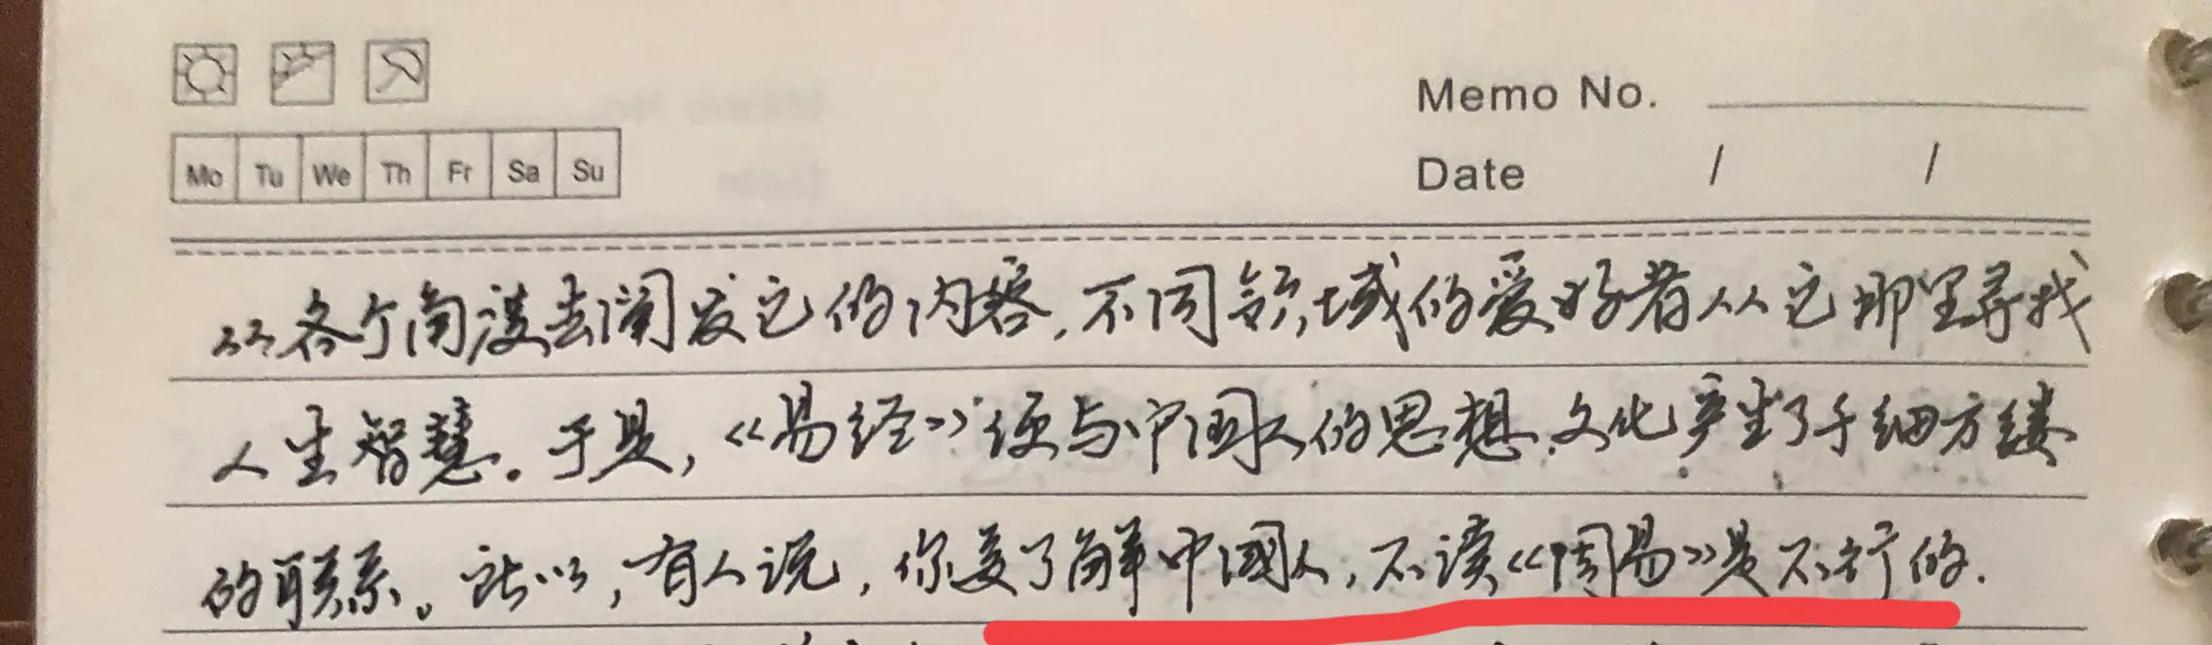 Memo No.
Mo Tu We Th Fr Sa Su
Date / /
从各个角度去阐发它的内容,不同领域的爱好者从它那里寻找
人生智慧。于是,《易经》便与中国人的思想、文化产生了千丝万缕
的联系。所以,有人说,你要了解中国人,不读《周易》是不行的.